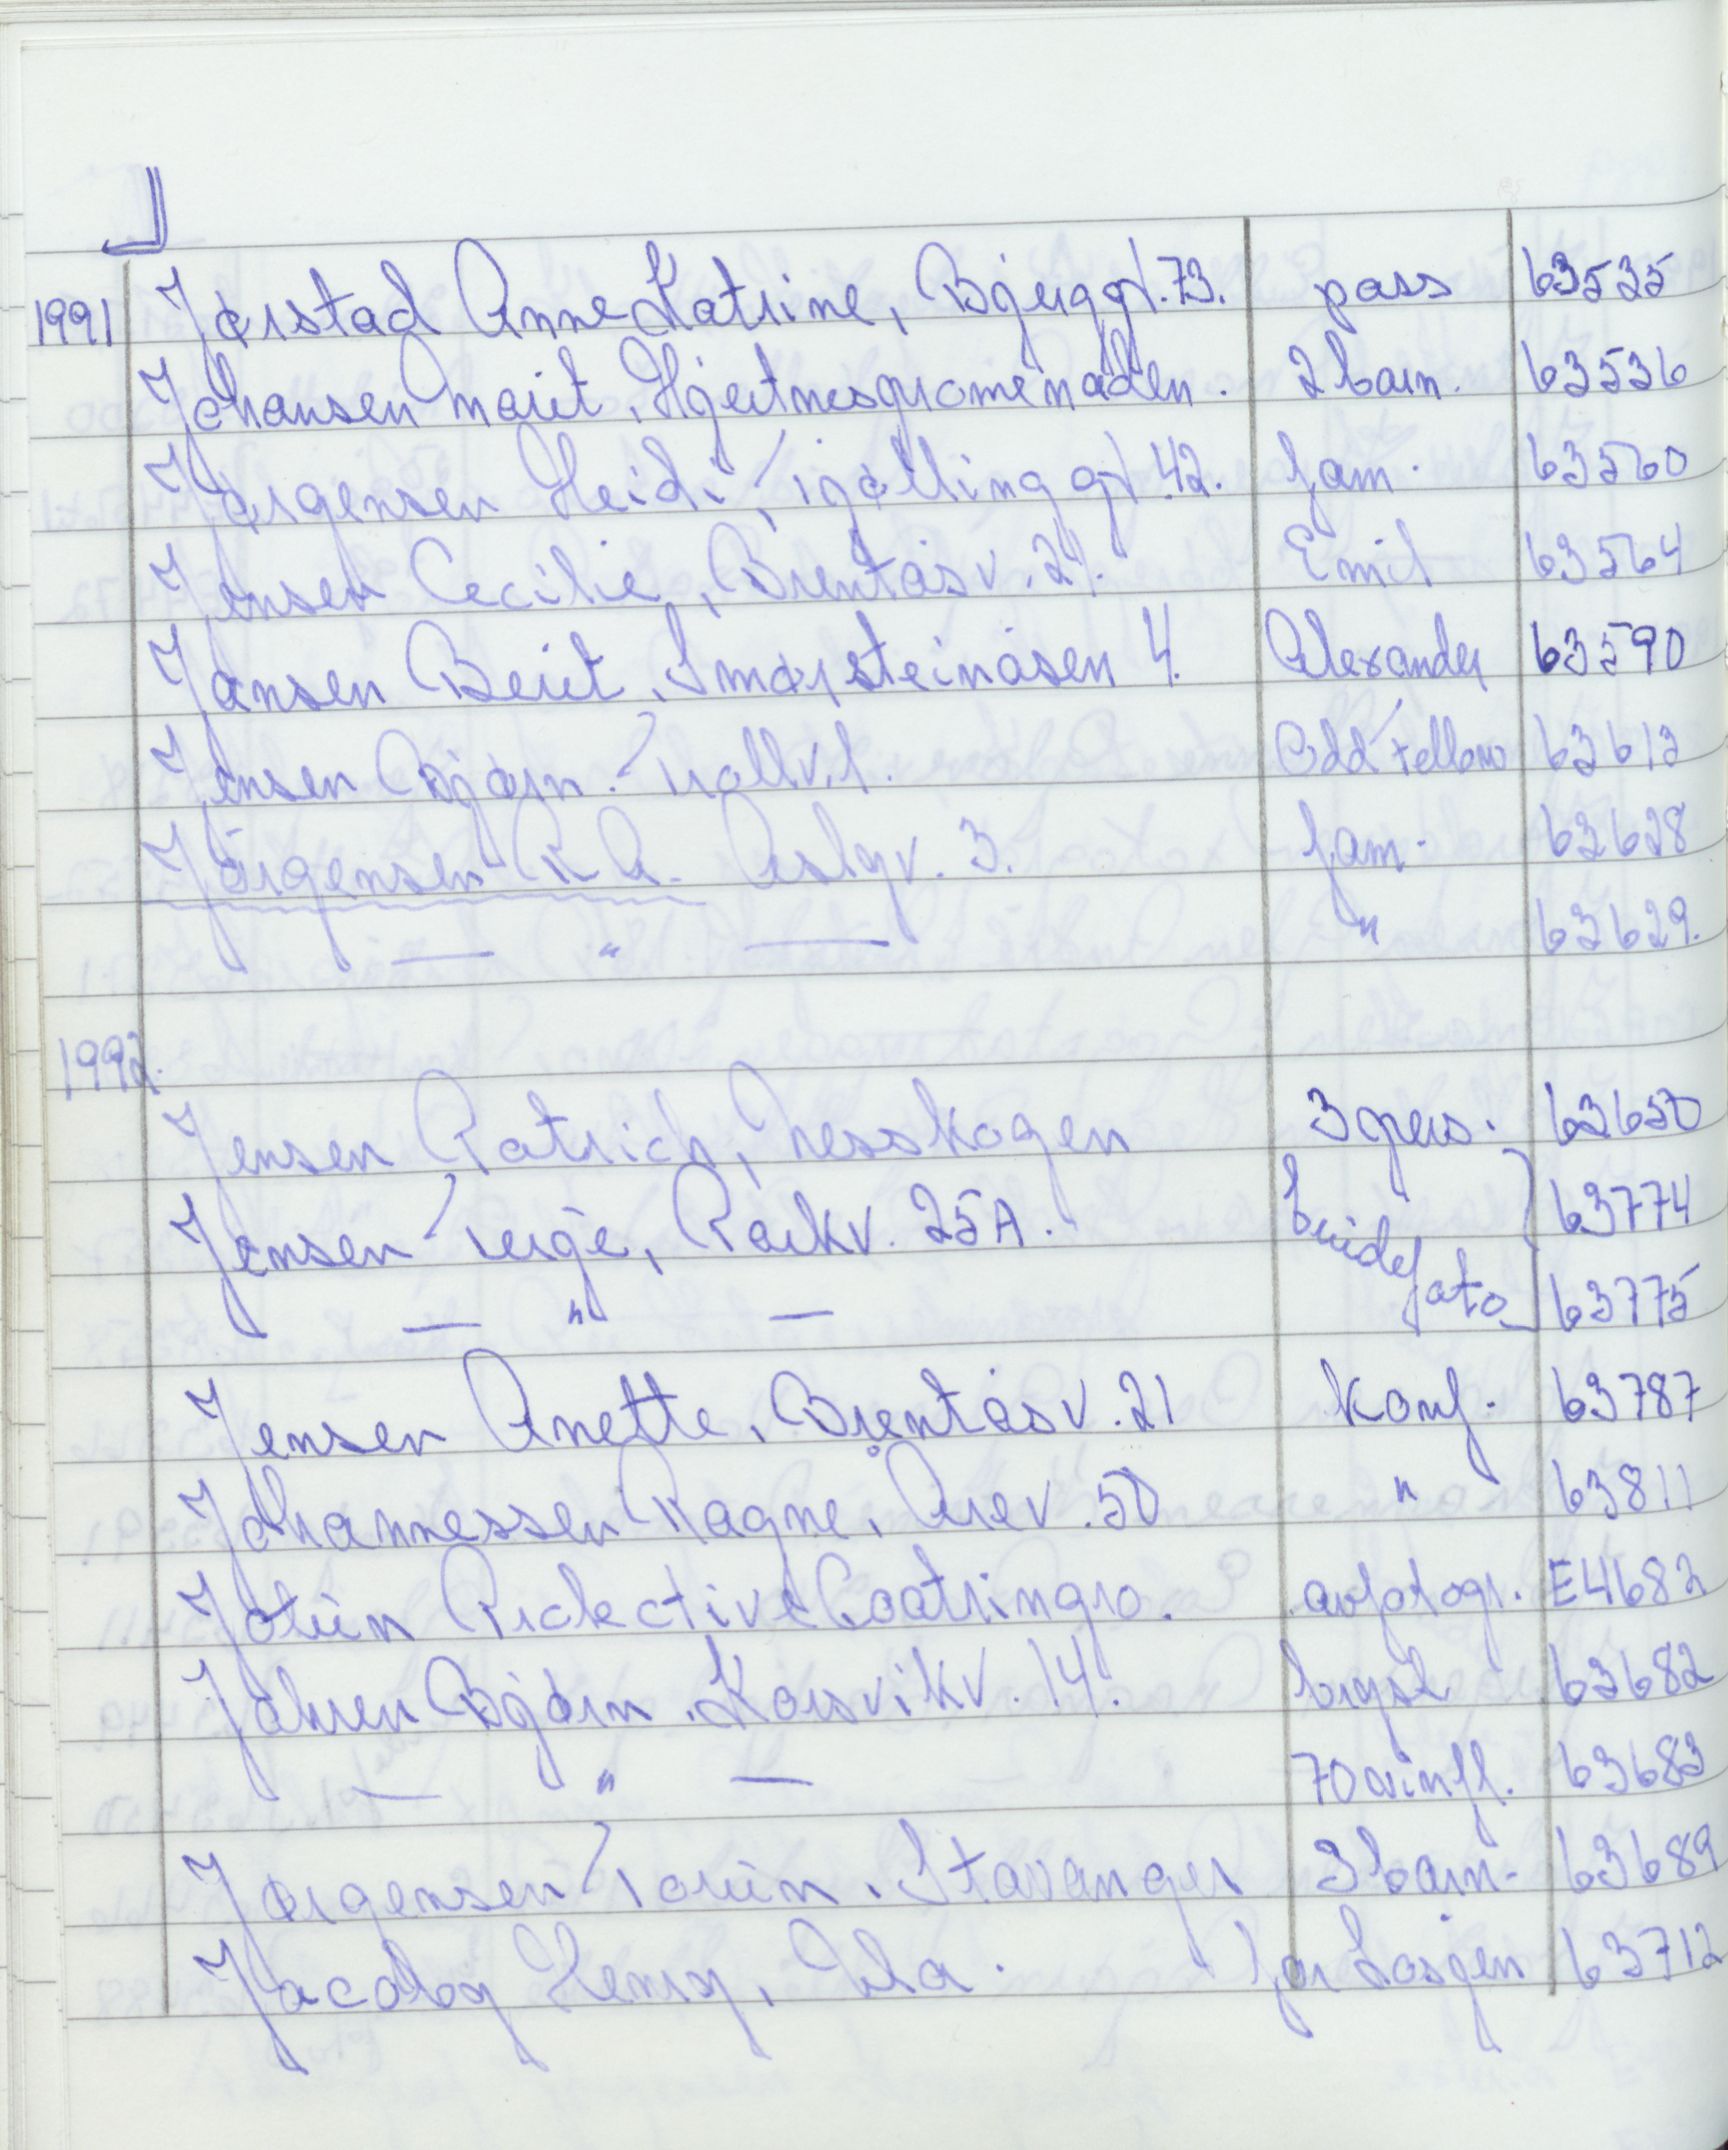 J
1991 Jørstad Anne Katrine, Bjerggt. 73. pass 63535
Johansen Marit, Hjertnespromenaden. 2 barn. 63536
Jørgensen Heidi, Tjøllinggt. 42. fam. 63560
Jensen Cecilie, Brentåsv. 21. Emil 63564
Jansen Berit, Smørsteinåsen 4. Alexander 63590
Jensen Bjørn. Trollv. 1. Odd Fellow 63612
Jörgensen R A. Aslgv. 3. fam. 63628
— " — " 63629.
1992.
Jensen Patrich, Nesskogen 3 pers. 63650
Jensen Terje, Parkv. 25A. brudef 63774
— " — oto 63775
Jensen Anette, Brentåsv. 21 konf. 63787
Johannessen Ragne, Årev. 50 " 63811
Jotun Protective Coatrings. avfotogr. E4682
Jahren Bjørn. Korsvikv. 14. bryst 63682
— " — 70 63683
Jørgensen Torun. Stavanger 3 barn. 63689
Jacoby Henry, Ula. 63712